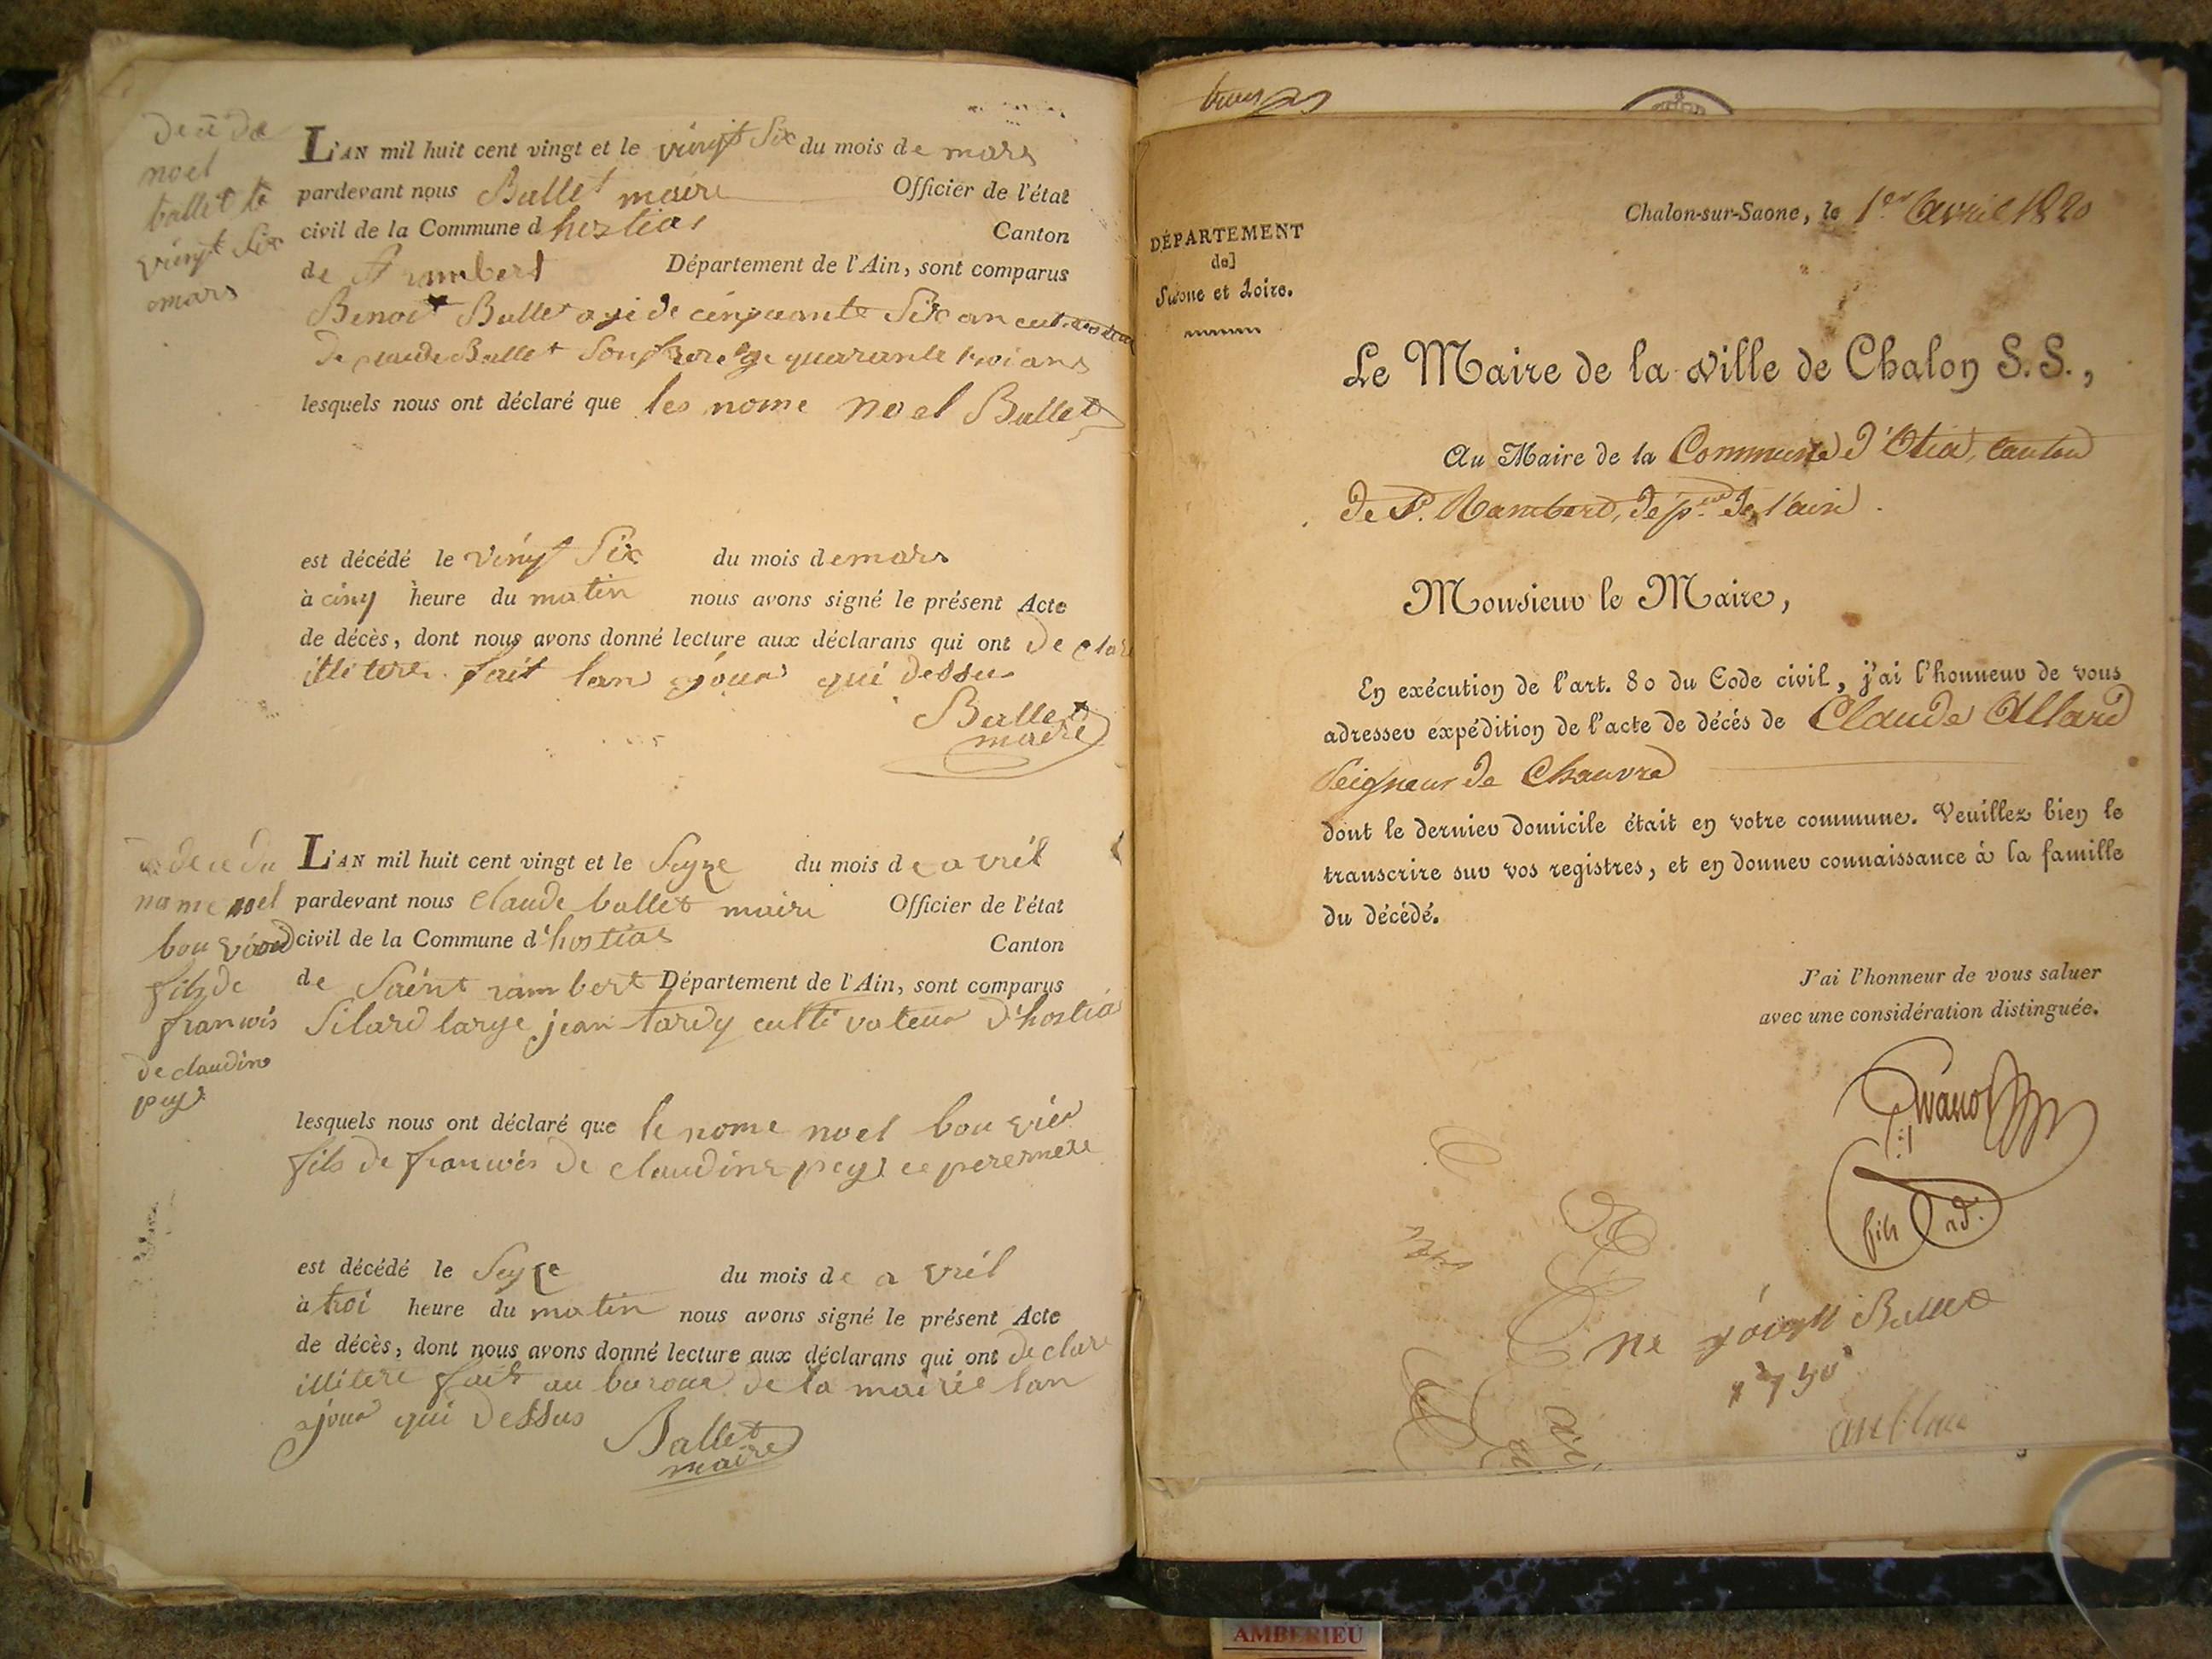 decè de
noel
ballet le
vingt six
mars
L'AN mil huit cent vingt et le vingt six du mois de mars
pardevant nous Ballet maire Officier de l'état
civil de la Commune d hostias Canton
de St rambert Département de l'Ain, sont comparus
Benoit Ballet age de cinquante six an
de claude Ballet son frere age quarante troi ans
lesquels nous ont déclaré que les nome noel Ballet
est décédé le vingt six du mois de mars
à cinq heure du matin nous avons signé le présent Acte
de décès, dont nous avons donné lecture aux déclarans qui ont de clare
illitere fait lan jour qui dessus
Ballet
maire
decè du
nome noel
bouvier
fils de
franwis
de claudine
pey
L'AN mil huit cent vingt et le seyze du mois de avril
pardevant nous claude ballet maire Officier de l'état
civil de la Commune d'hostias Canton
de Saint rambert Département de l'Ain, sont comparus
Silard large jean tardy cultivateur d'hostia
lesquels nous ont déclaré que le nome noel bouvier
fils de franwis de claudine pey ce pere mere
est décédé le seyze du mois de avril
à troi heure du matin nous avons signé le présent Acte
de décès, dont nous avons donné lecture aux déclarans qui ont declare
illitere fait au buroue de la mairie lan
jour qui dessus
Ballet
maire
Chalon-sur-Saone, le 1er avril 1820
DÉPARTEMENT
de
Saone et Loire.
Le Maire de la ville de Chalon S. S.,
Au Maire de la Commune d'Otia, canton
de St. Rambert, dépt. de l'ain.
Monsieur le Maire,
En exécution de l'art. 80 du Code civil, j'ai l'honneur de vous
adresser expédition de l'acte de décés de Claude Allard
Seigneur de Chauvre
dont le dernier domicile était en votre commune. Veuillez bien le
transcrire sur vos registres, et en donner connaissance à la famille
du décédé.
J'ai l'honneur de vous saluer
avec une considération distinguée.
fils ad.
AMBERIEU